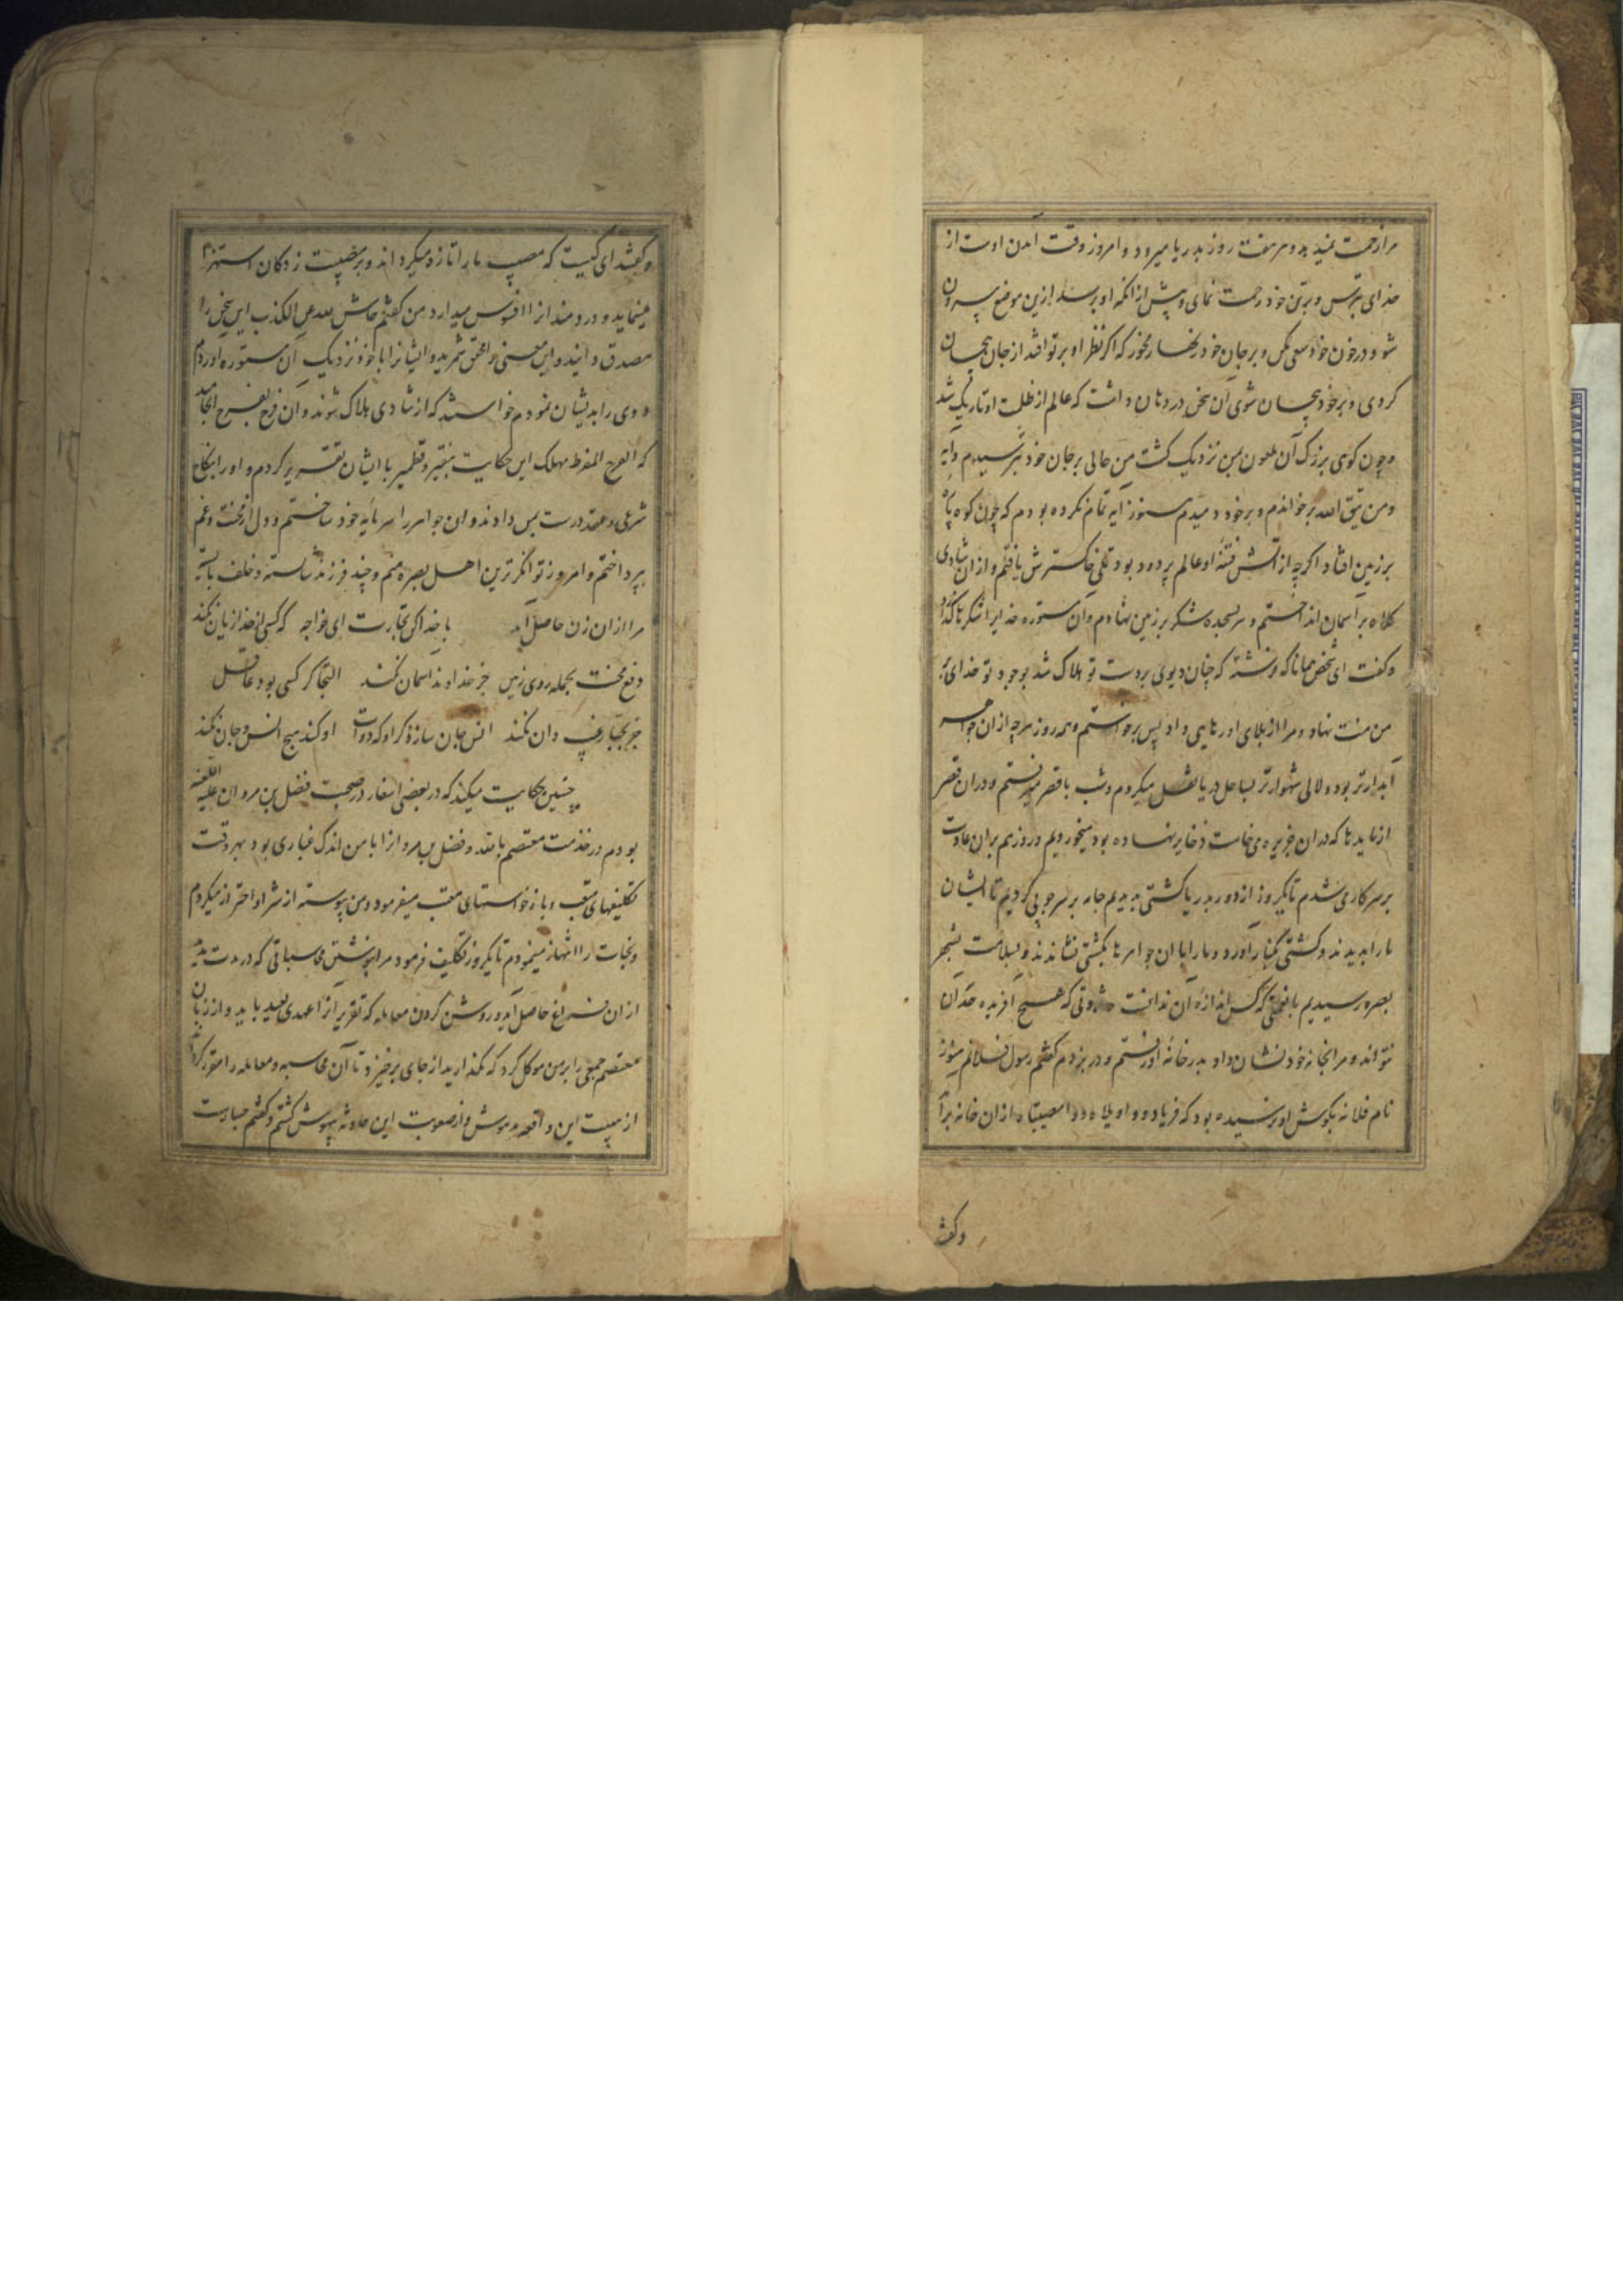 مرا زحمت نمیدهد و هر هفت روز بدریا میرود و امروز وقت آمدن اوست از
خدای بترس و بر تن خود رحمت نمای و پیش از انکه او برسد ازین موضع بیرون
شو و در خون خود سعی مکن و بر جان خود زنهار مخور که اگر نظر او بر تو افتد از جان بیجان
کردی و بر خود پیچان شوی آن سخن در دهان داشت که عالم از ظلمت او تاریک شد
و چون کوهی بزرک آن ملعون بمن نزدیک کشت من حالی بر جان خود بترسیدم و آیه
و من یتق الله بر خواندم و بر خود دمیدم هنوز آیه تمام نکرده بودم که چون کوه پاره
بر زمین افتاد اکرچه از آتش فتنه او عالم پر دود بود تلی خاکسترش یافتم و از ان شادی
کلاه بر آسمان انداختم و سر بسجده شکر بر زمین نهادم و آن مستوره خدایرا شکرها کذارد
و کفت ای شخص همانا که فرشته که چنان دیوی بر دست تو هلاک شد بوجود تو خدای بر
من منت نهاد و مرا از بلای او رهایی داد پس برخواستم و همه روز هرچه از ان جواهر
آبدارتر بود و لالی شهوارتر بساحل دریا نقل میکردم و شب با قصر میرفتم و دران قصر
از مایدها که دران جزیره می خاست ذخایر نهاده بود میخوردیم و روز هم بران عادت
بر سر کار می شدم تا یکروز از دور بدریا کشتی بدیدیم جامه بر سر چوبی کردیم تا ایشان
ما را بدیدند و کشتی بکنار آورد و ما را با ان جواهرها بکشتی نشاندند و بسلامت بشهر
بصره رسیدیم با نعمتی که کس اندازه آن ندانست و ثروتی که هیچ آفریده حد آن
نتواند و مرا بخانه خود نشان داد بدر خانه او رفتم و در بزدم کفتم رسول فلانم هنوز
نام فلانه بکوش او نرسیده بود که فریاد و واویلاه و وامصیبتاه از ان خانه برآمد
و کفتند
و کفتند ای کیست که مصیبت ما را تازه میکرداند و بر مصیبت زدکان استهزا
مینماید و دردمندان را افسوس میدارد من کفتم حاش لله عن الکذب این سخن را
مصدق دانید و این معنی را محقق شمرید و ایشانرا با خود نزدیک آن مستوره آوردم
و وی را بدیشان نمودم خواستند که از شادی هلاک شوند و آن فرح بقرح انجامد
که الفرح المفرط مهلک این حکایت بنقیر و قطمیر با ایشان تقریر کردم و او را بنکاح
شرعی و عقد درست بمن دادند و ان جواهر را سرمایه خود ساختم و دل از محنت و غم
بپرداختم و امروز توانکرترین اهل بصره منم و چند فرزند شایسته و خلف بایسته
مرا ازان زن حاصل آمد با خدا کن تجارت ای خواجه که کسی از خدا زیان نکند
دفع محنت بجمله روی زمین جز خداوند آسمان نکند التجا کر کسی بود عاقل
جز بجبار غیب دان نکند انس جان سازد ذکر او که دوات او کند هیچ انس و جان نکند
چنین حکایت میکند که در بعضی اسفار در صحبت فضل بن مروان علیه اللعنه
بودم در خدمت معتصم بالله و فضل بن مروانرا با من اندک غباری بود بهر وقت
تکلیفهای صعب و بازخواستهای معتب میفرمود و من پیوسته از شر او احتراز میکردم
و نجات را انتهاز مینمودم تا یکروز تکلیف فرمود مرا بنوشتن محاسباتی که در مدت مدید
ازان فراغ حاصل آید و روشن کردن معامله که تقریر آنرا عهدی بعید باید و از زبان
معتصم جمعی را بر من موکل کرد که نکذارید از جای برخیزد تا آن محاسبه و معامله را مقرر کرداند
از هیبت این واقعه مدهوش و از صعوبت این حادثه بیهوش کشتم و کفتم